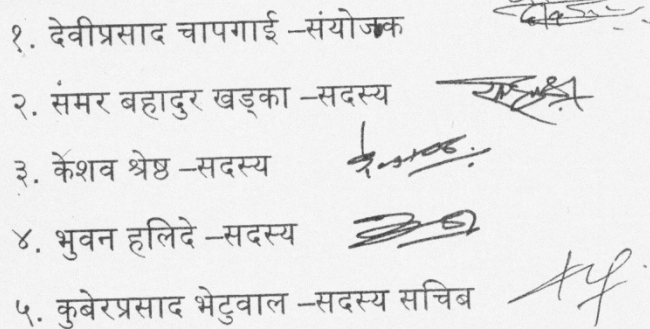 १. देवीप्रसाद चापगाई –संयोजक
२. संमर बहादुर खड्का –सदस्य
३. केशव श्रेष्ठ –सदस्य
४. भुवन हलिदे –सदस्य
५. कुबेरप्रसाद भेटुवाल –सदस्य सचिब